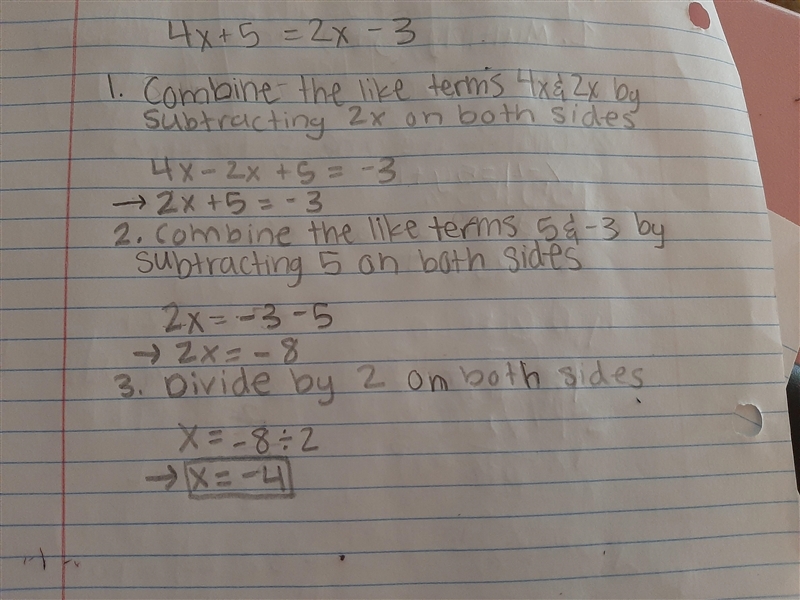 4x+5 = 2x - 3
1. Combine the like terms 4x & 2x by
subtracting 2x on both sides
4x - 2x + 5 = -3
→ 2x + 5 = -3
2. Combine the like terms 5 & -3 by
subtracting 5 on both sides
2x = -3 - 5
→ 2x = -8
3. Divide by 2 on both sides
x = -8 ÷ 2
→ x = -4